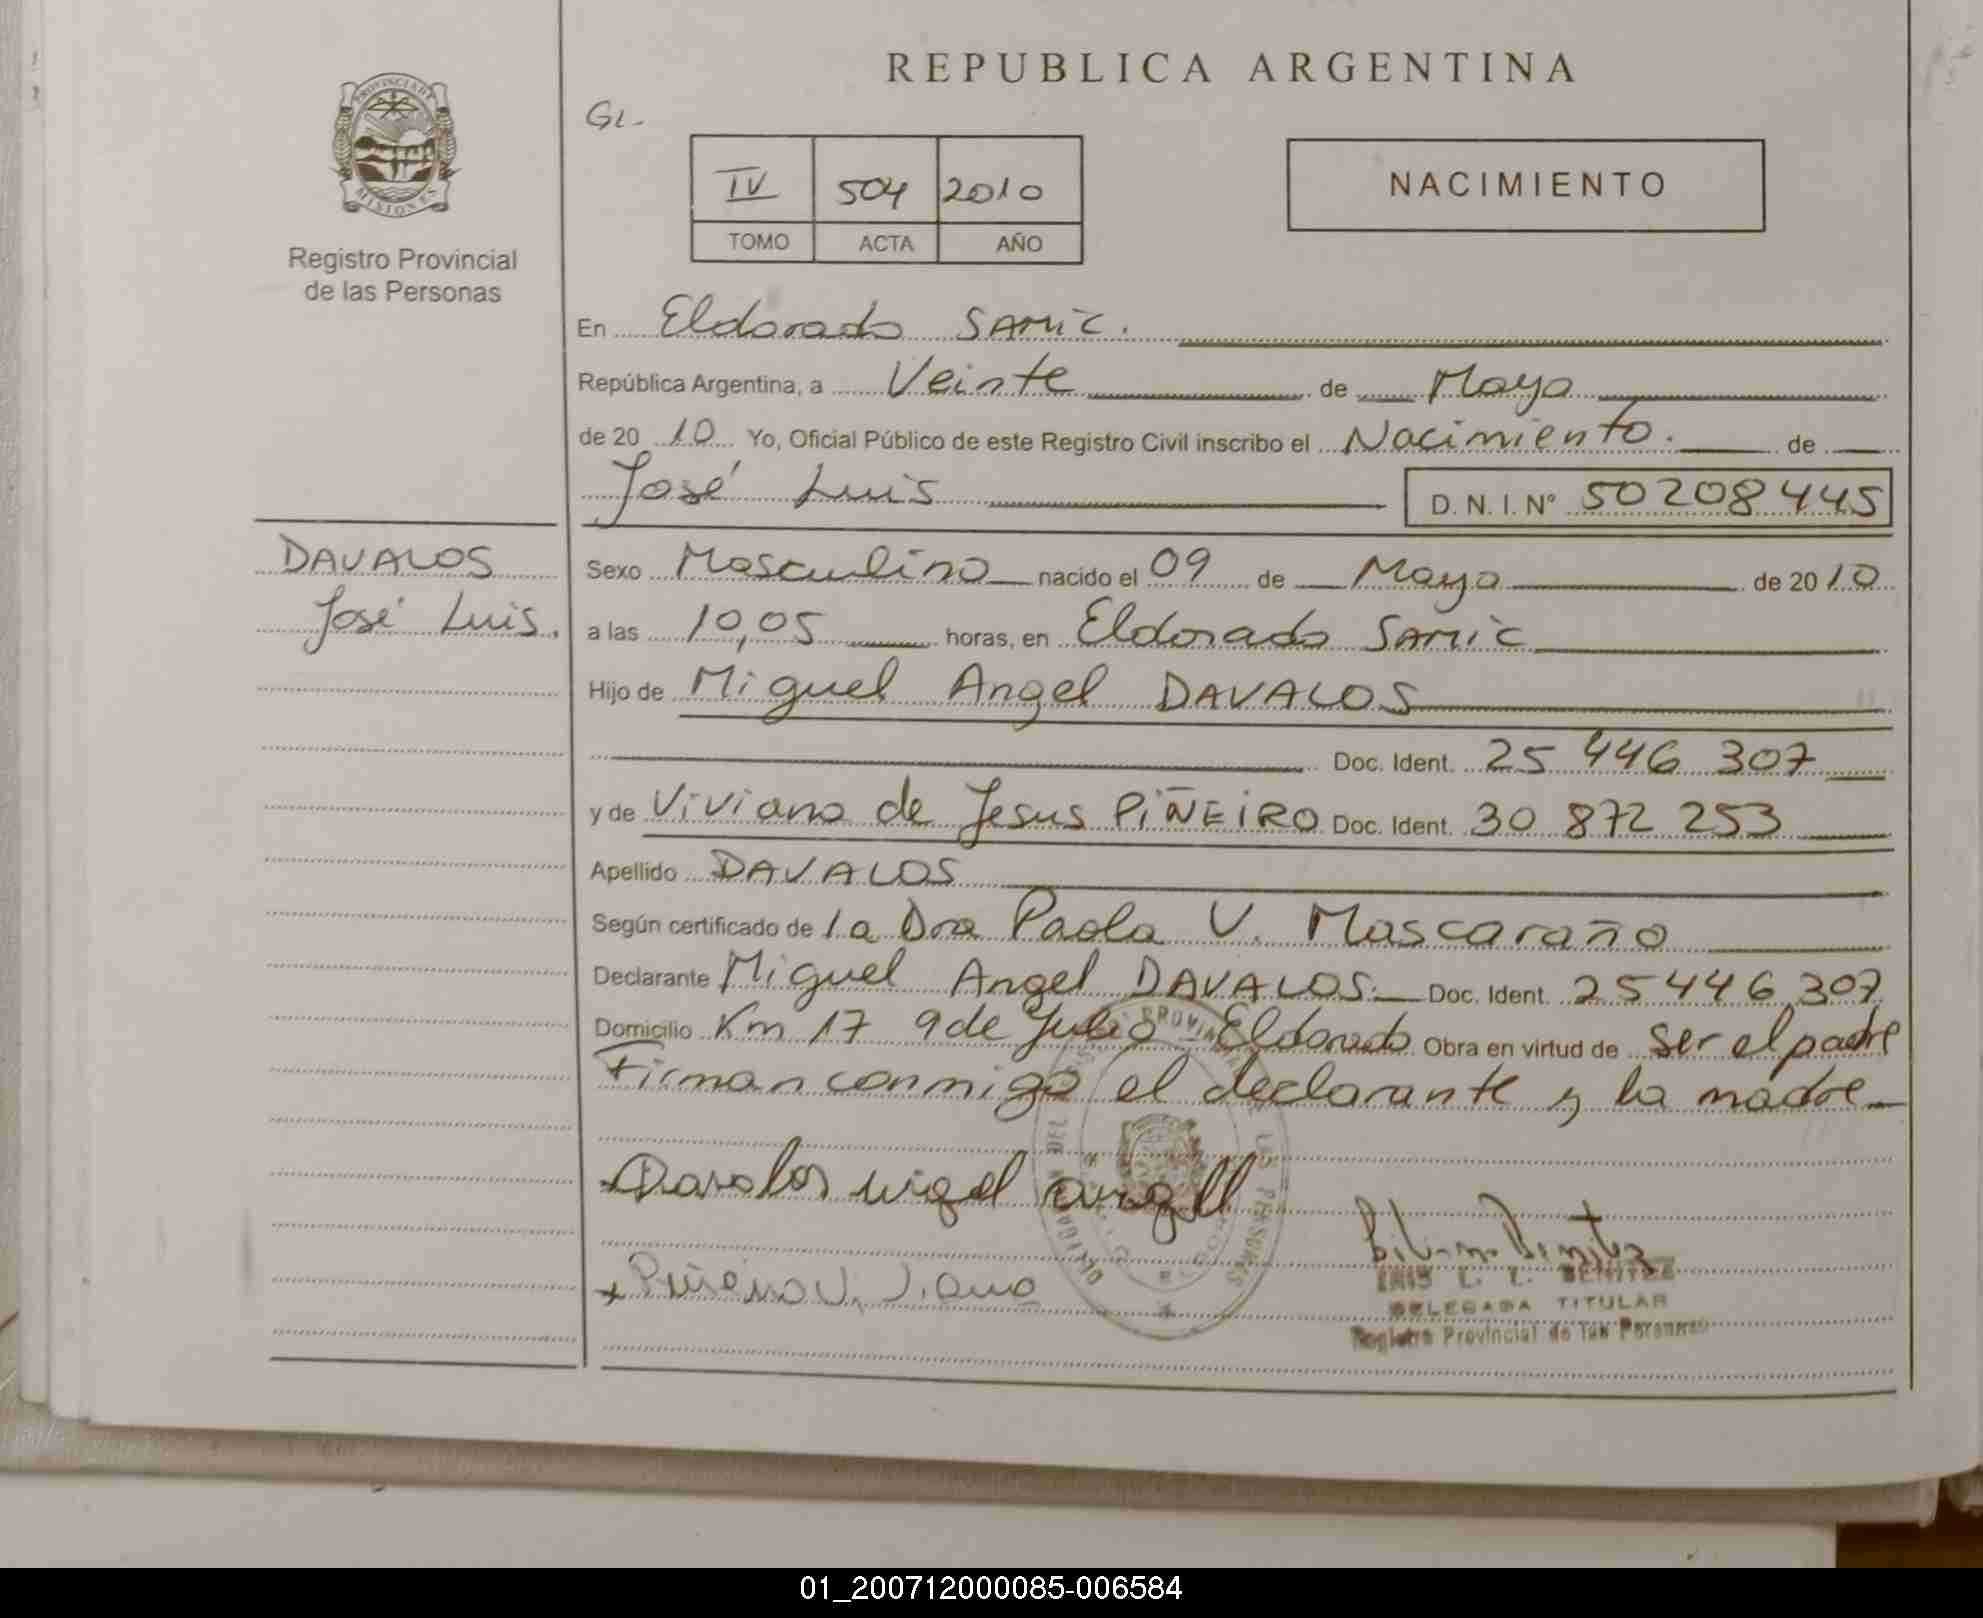 REPUBLICA ARGENTINA
PROVINCIA DE
MISIONES
Registro Provincial
de las Personas
GL-
IV 504 2010
TOMO ACTA AÑO
NACIMIENTO
En Eldorado SAMIC.
República Argentina, a Veinte de Mayo
de 20 10 Yo, Oficial Público de este Registro Civil inscribo el Nacimiento. de
José Luis D. N. I. N° 50208445
DAVALOS
José Luis.
Sexo Masculino nacido el 09 de Mayo de 20 10
a las 10,05 horas, en Eldorado SAMIC
Hijo de Miguel Angel DAVALOS
Doc. Ident. 25 446 307
y de Viviana de Jesus PIÑEIRO Doc. Ident. 30 872 253
Apellido DAVALOS
Según certificado de la Dra Paola V. Mascaraño
Declarante Miguel Angel DAVALOS. Doc. Ident. 25446307
Domicilio Km 17 9 de Julio Eldorado Obra en virtud de ser el padre
Firman conmigo el declarante y la madre
Davalos migel angell
Piñeiro Viviana
BENITEZ
DELEGADA TITULAR
Registro Provincial de las Personas
01_200712000085-006584